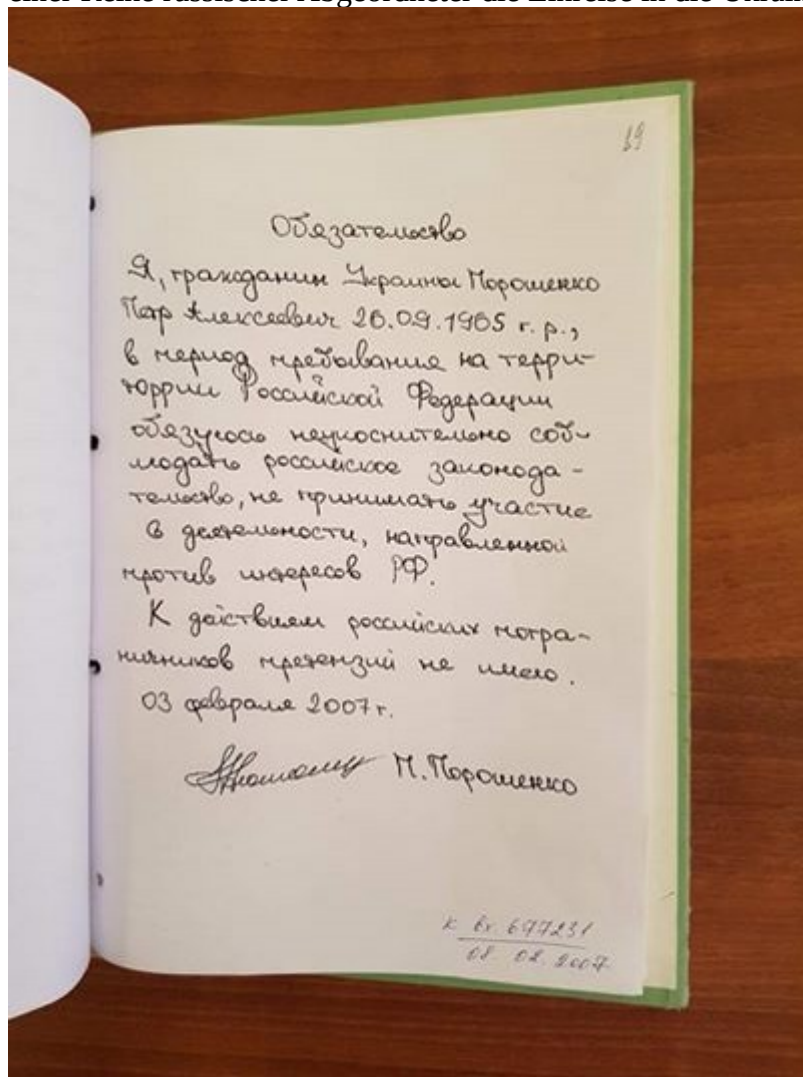 einer Reihe russischer Abgeordneter die Einreise in die Ukrain
39
Обязательство
Я, гражданин Украины Порошенко
Петр Алексеевич 26.09.1965 г.р.,
в период пребывания на терри-
торрии Российской Федерации
обязуюсь неукоснительно соб-
людать российское законода-
тельство, не принимать участие
в деятельности, направленной
против интересов РФ.
К действием российских погра-
ничников претензий не имею.
03 февраля 2007 г.
П. Порошенко
к вх. 677231
08 02. 2007